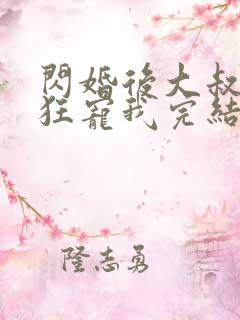 閃婚後大叔
狂寵我完結
隆志勇